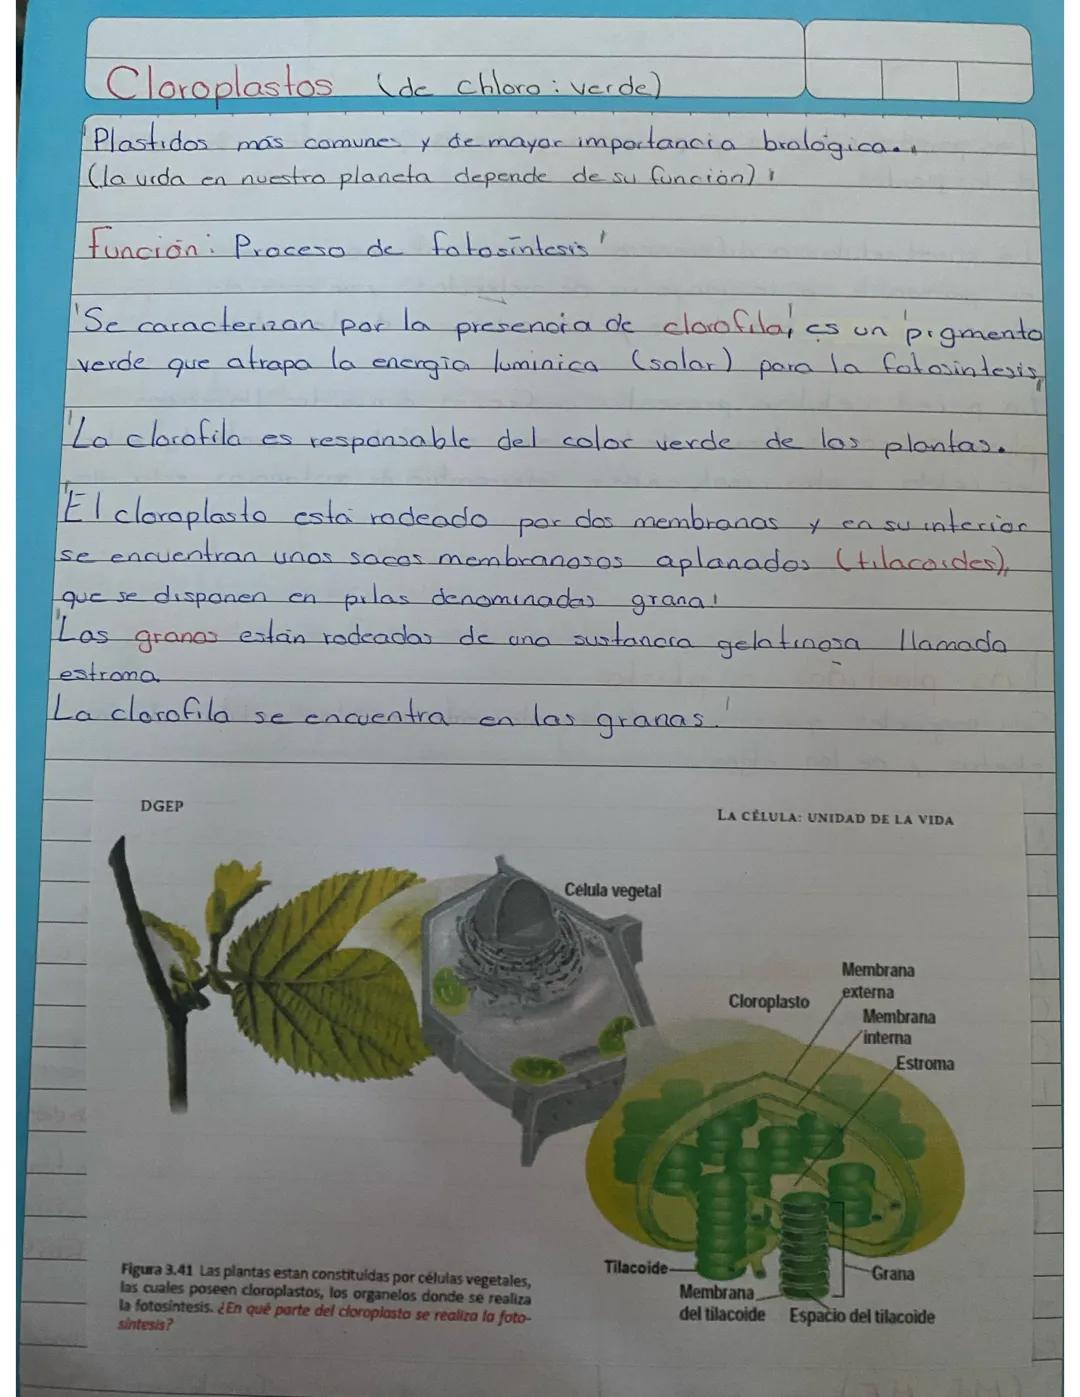 Cloroplastos (de chloro: verde)
Plastidos más comunes y de mayor importancia biológica.
(la vida en nuestro planeta depende de su función)
función: Proceso de fotosíntesis
Se caracterizan por la presencia de clorofila, es un pigmento
verde que atrapa la energía luminica (solar) para la fotosintesis,
La clorofila es responsable del color verde de las plantas.
El cloroplasto está rodeado por dos membranas y en su interior
se encuentran unos sacos membranosos aplanados (tilacoides),
que se disponen en pilas denominadas grana
Las granas están rodeadas de una sustancia gelatinosa llamada
estroma.
La clorofila se encuentra en las granas.
DGEP
LA CÉLULA: UNIDAD DE LA VIDA
Célula vegetal
Cloroplasto
Membrana
externa
Membrana
interna
Estroma
Tilacoide
Membrana
del tilacoide
Espacio del tilacoide
Grana
Figura 3.41 Las plantas estan constituidas por células vegetales,
las cuales poseen cloroplastos, los organelos donde se realiza
la fotosíntesis. ¿En qué parte del cloroplasto se realiza la foto-
síntesis?